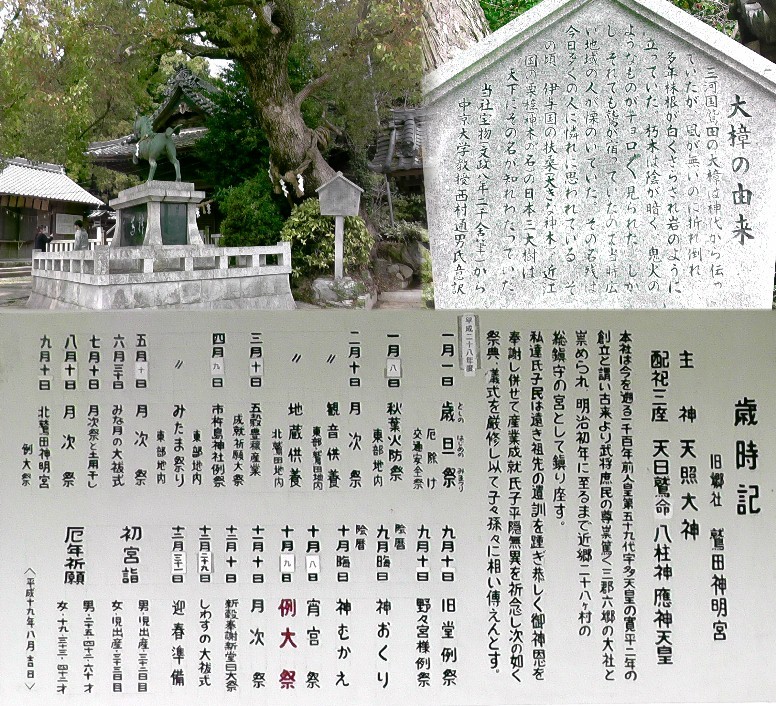 大樟の由来
三河国鷲田の大樟は神代から伝っ
ていたが 風が無いのに折れ倒れ
多年林根が白くさらされ岩のように
立っていた 朽木は陰が暗く 鬼火の
ようなものがチョロ〱見られた しか
し それでも鷲が宿っていたので当時広
い地域の人が慄のいていた その名残は
今日多くの人に憐れに思われている そ
の頃 伊予国の扶桑大きな神木 近江
国の東桂神木の名の日本三大樹は
天下にその名が知れわたっていた
当社宝物(文政八年二十会筆)から
中京大学教授西村通男氏意訳
歳時記
旧郷社 鷲田神明宮
主神 天照大神
配祀三座 天日鷲命 八柱神 應神天皇
本社は今を遡る一千百年前人皇第五十九代宇多天皇の寛平二年の
創立と謂い古来より武将庶民の尊崇篤く三郡六郷の大社と
崇められ 明治初年に至るまで近郷二十八ヶ村の
総鎮守の宮として鎮り座す。
私達氏子民は遠き祖先の遺訓を踵ぎ恭しく御神恩を
奉謝し併せて産業成就氏子平隠無異を祈念し次の如く
祭典、儀式を厳修し以て子々孫々に相い傳えんとす。
平成二十八年度
一月一日 歳旦祭
としの はじめの みまつり
厄除け
交通安全祭
一月八日 秋葉火防祭
東部地内
二月十日 月次祭
〃 観音供養
東部鷲田地内
〃 地蔵供養
北鷲田地内
三月十日 五穀豊穣産業
成就祈願大祭
四月九日 市杵島神社例祭
東部地内
〃 みたま祭り
東部地内
五月十日 月次祭
六月三十日 みな月の大祓式
七月十日 月次祭と土用干し
八月十日 月次祭
九月十日 北鷲田神明宮
例大祭
九月十日 旧堂例祭
九月十日 野々宮様例祭
陰暦
九月晦日 神おくり
陰暦
十月晦日 神むかえ
十月八日 宵宮祭
十月九日 例大祭
十一月十日 月次祭
十二月十日 新穀奉謝新嘗日大祭
十二月二十九日 しわすの大祓式
十二月三十一日 迎春準備
初宮詣
男児出産・三十二日目
女児出産・三十三日目
厄年祈願
男・二十五・四十二・六十才
女・十九・三十三・四十二才
〈平成十九年八月吉日〉